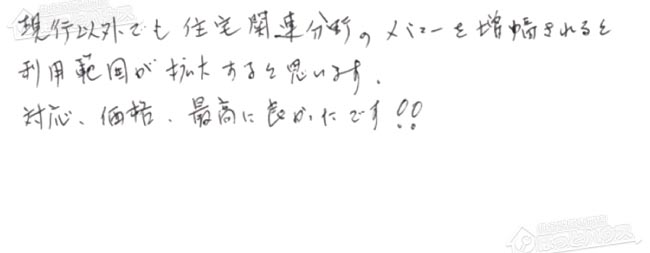 現行以外でも住宅関連分野のメニューを増幅されると
利用範囲が拡大すると思います。
対応、価格、最高に良かったです!!
ほっとハウス